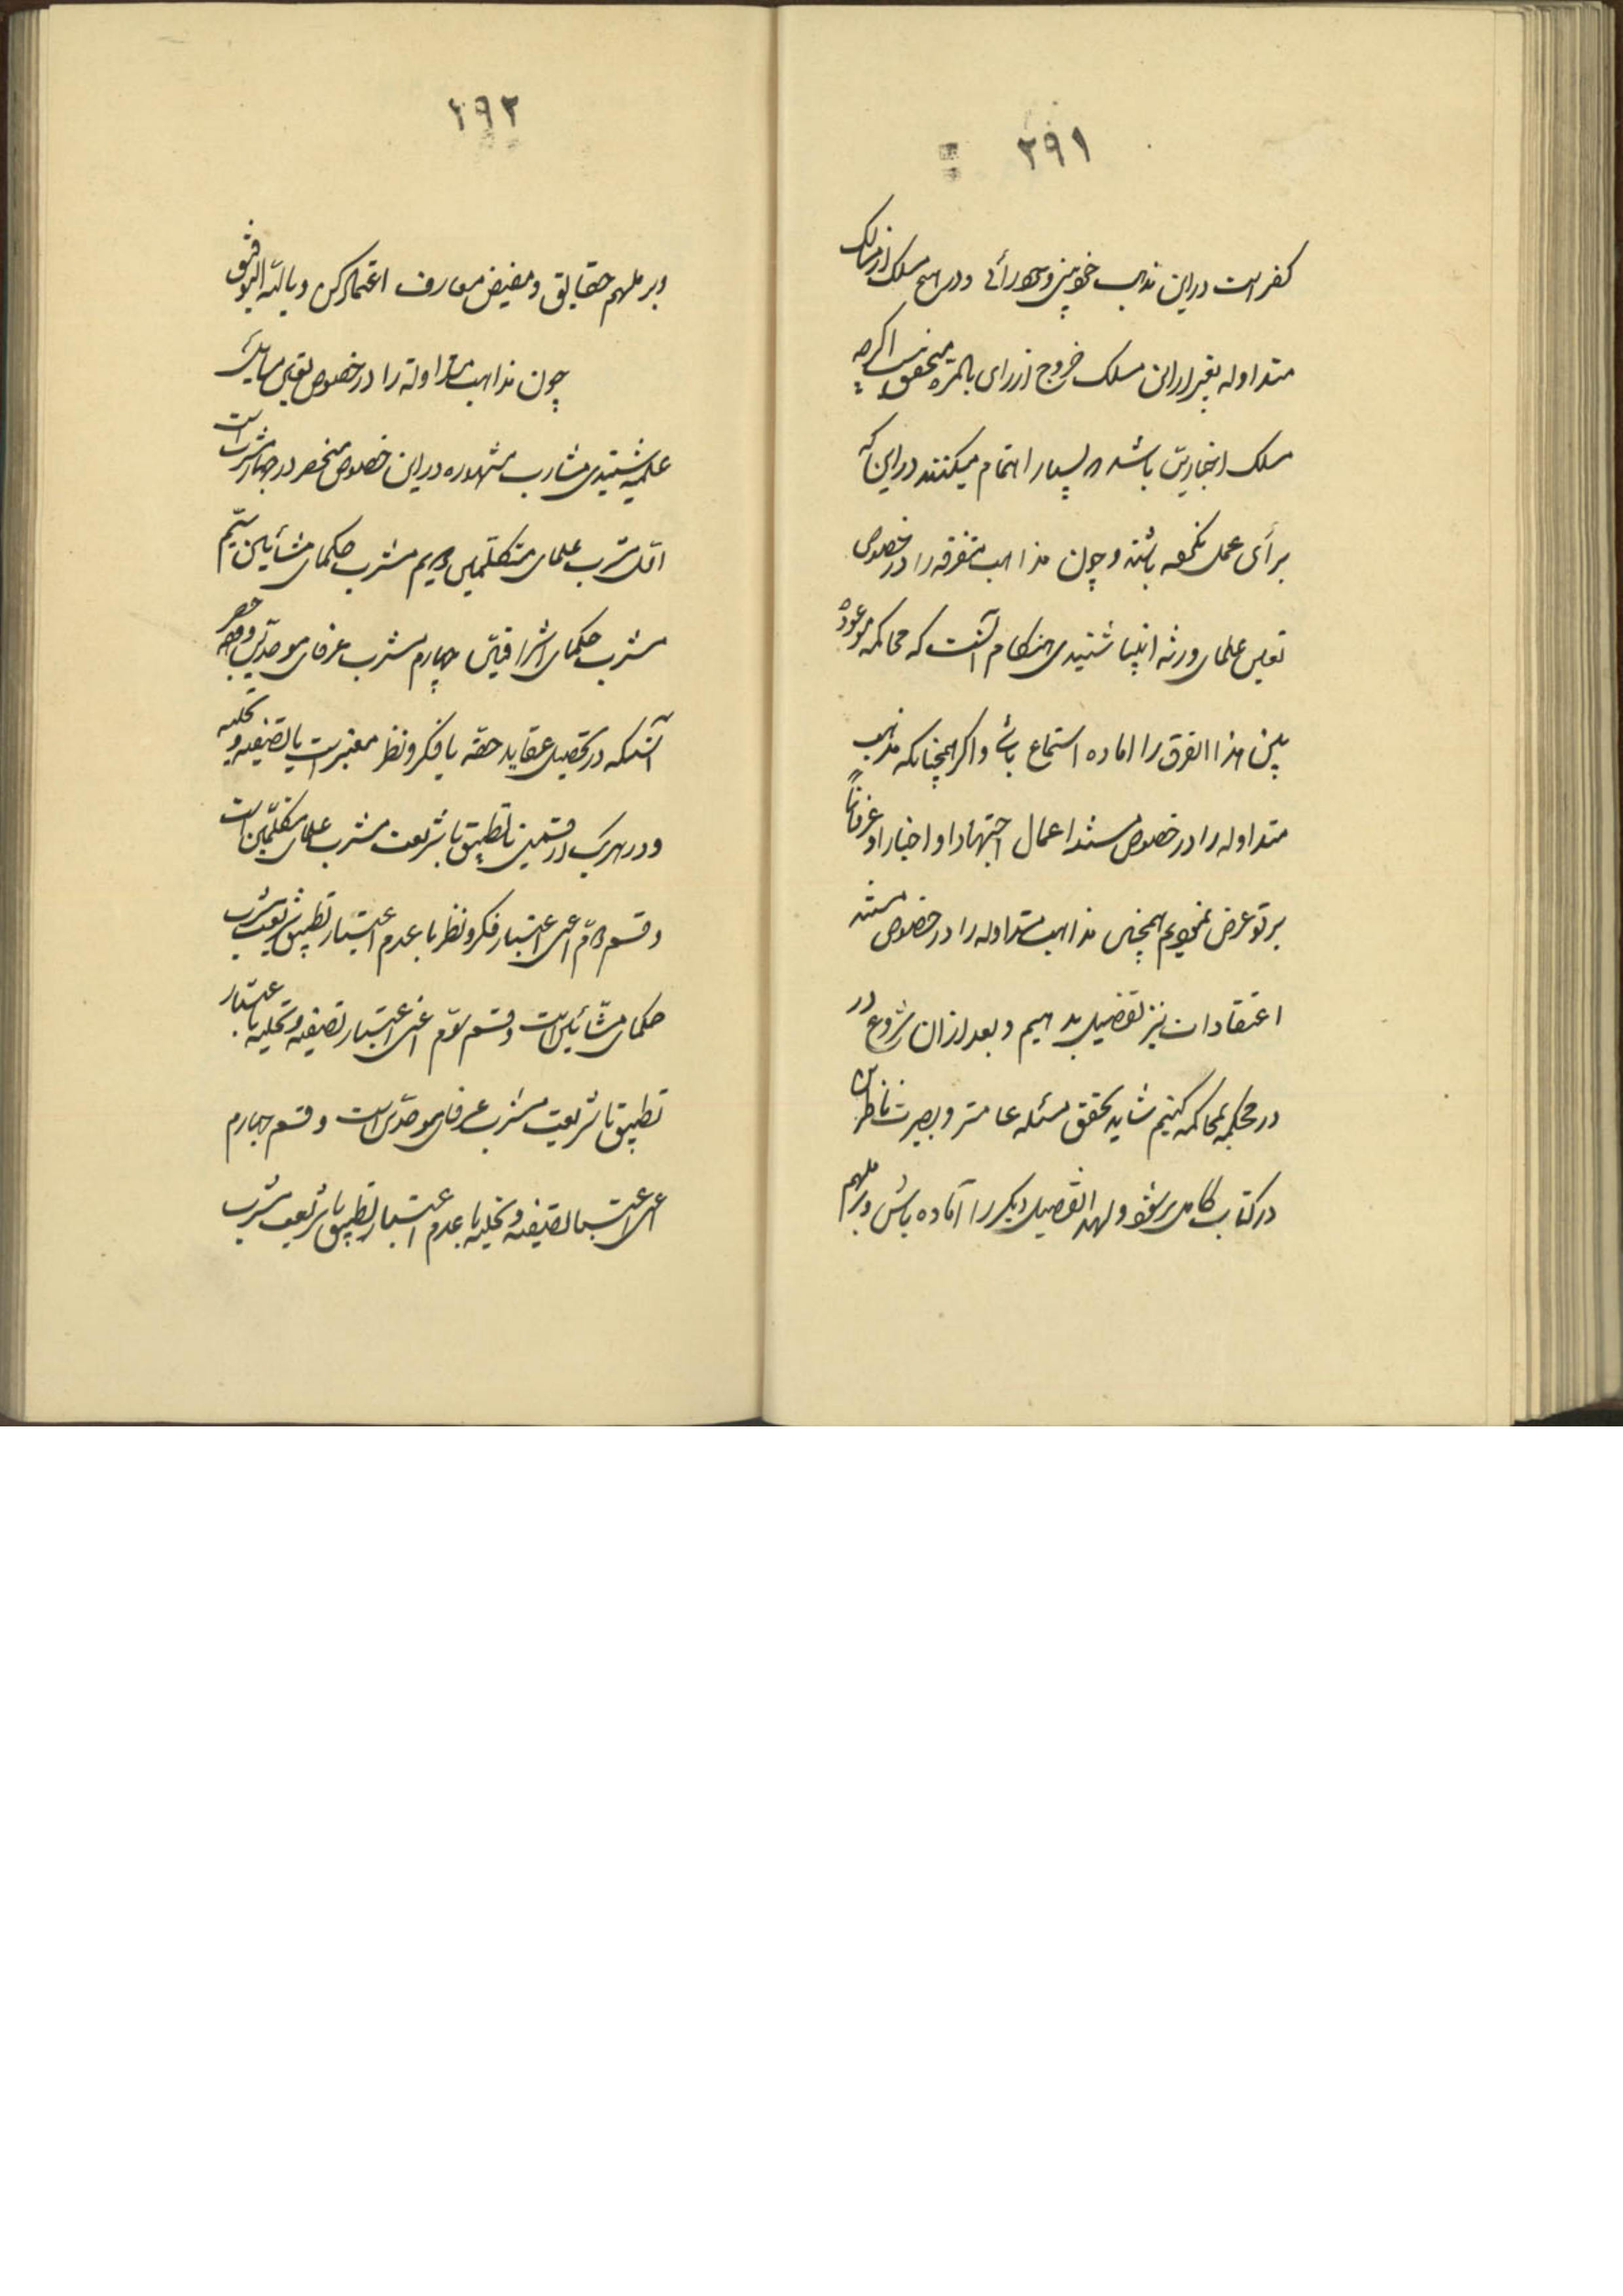 ۲۹۱
کفر است در این مذهب خودبینی و خودرأئی و در هیچ مسلک از مسالک
متداوله بغیر از این مسلک خروج از رای بالمره متحقق نیست اگرچه
مسلک اخباریین باشد و بسیار اهتمام میکنند در این که
برأی عمل نکنند باشند و چون مذاهب متفرقه را در خصوص
تعیین علمای ورثه انبیا شنیدی هنکام آنست که محاکمه موعوده
بین هذا الفرق را اماده استماع باش و اگر همچنانکه مذهب
متداوله را در خصوص مستند اعمال اجتهادا و اخبارا و عرفانا
بر تو عرض نمودیم همچنین مذاهب متداوله را در خصوص مستند
اعتقادات نیز تفصیل بدهیم و بعد از ان شروع در
در محکمه محاکمه کنیم شاید تحقق مسئله عامتر و بصیرت ناظرین
در کتاب کاملتر شود و لهذا تفصیل دیگر را آماده باش و بر ملهم
۲۹۲
و بر ملهم حقایق و مفیض معارف اعتماد کن و بالله التوفیق
چون مذاهب متداوله را در خصوص تعیین مسایل
علمیه شنیدی مشارب مشهوره در این خصوص منحصر در چهار مشرب است
اول مشرب علمای متکلمین دویم مشرب حکمای مشائین سیم
مشرب حکمای اشراقیین چهارم مشرب عرفای موحدین و وجه حصر
آنستکه در تحصیل عقاید حقه یا فکر و نظر معتبر است یا تصفیه و تخلیه
و در هر یک از قسمین با تطبیق با شریعت مشرب علمای متکلمین است
و قسم دوم اعنی اعتبار فکر و نظر با عدم اعتبار تطبیق شریعت مشرب
حکمای مشائین است و قسم سوم اعنی اعتبار تصفیه و تخلیه با اعتبار
تطبیق با شریعت مشرب عرفای موحدین است و قسم چهارم
اعنی اعتبار تصفیه و تخلیه با عدم اعتبار تطبیق با شریعت مشرب